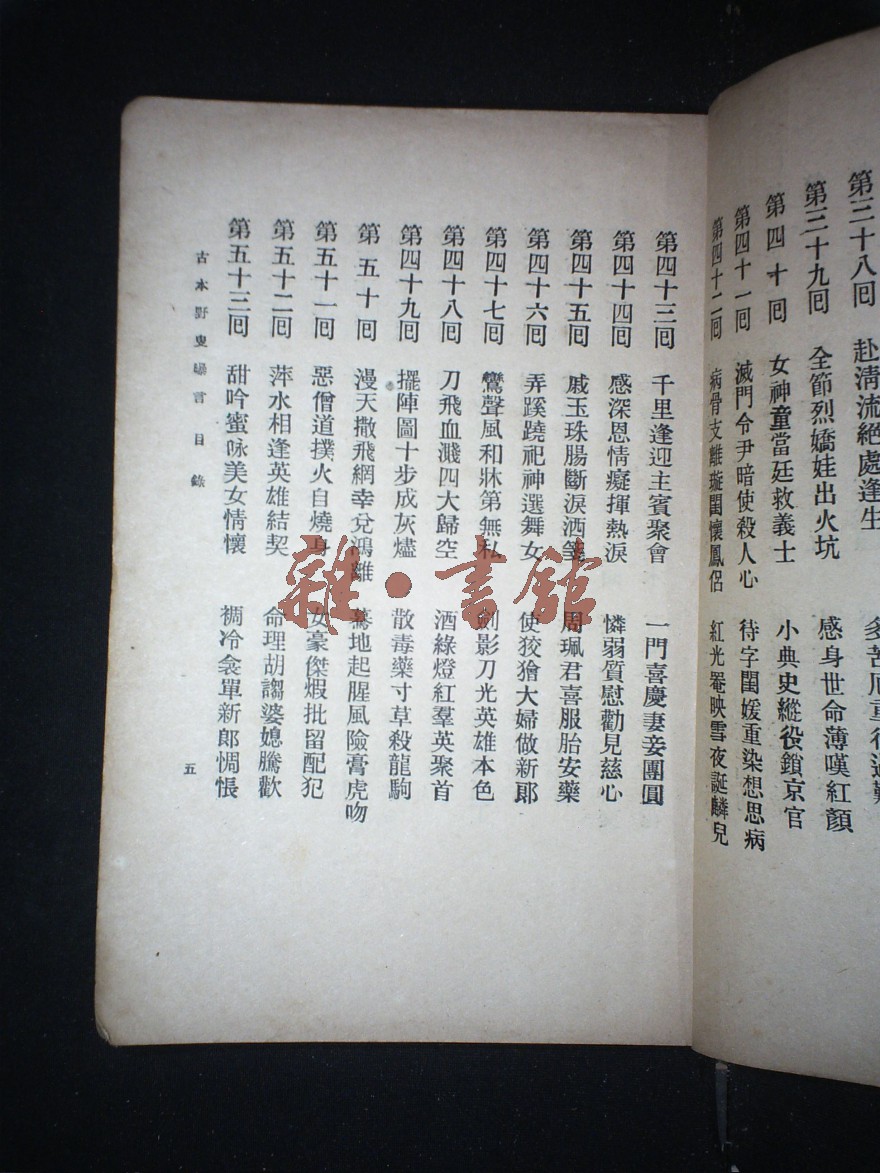 第三十八囘 赴清流絕處逢生
第三十九囘 全節烈嬌娃出火坑 感身世命薄嘆紅顏
第四十囘 女神童當廷救義士 小典史縱役鎖京官
第四十一囘 滅門令尹暗使殺人心 待字閨媛重染想思病
第四十二囘 病骨支離璇閨懷鳳侶 紅光罨映雪夜誕麟兒
第四十三囘 千里逢迎主賓聚會 一門喜慶妻妾團圓
第四十四囘 感深恩情癡揮熱淚 憐弱質慰勸見慈心
第四十五囘 戚玉珠腸斷淚洒箋 周珮君喜服胎安藥
第四十六囘 弄蹊蹺祀神選舞女 使狡獪大婦做新郎
第四十七囘 鸞聲風和牀第無私 劍影刀光英雄本色
第四十八囘 刀飛血濺四大歸空 酒綠燈紅羣英聚首
第四十九囘 擺陣圖十步成灰燼 散毒藥寸草殺龍駒
第五十囘 漫天撒飛網幸兌鴻離 驀地起腥風險膏虎吻
第五十一囘 惡僧道撲火自燒身 女豪傑煆批留配犯
第五十二囘 萍水相逢英雄結契 命理胡謅婆媳騰歡
第五十三囘 甜吟蜜咏美女情懷 裯冷衾單新郎惆悵
古本野叟曝言目錄
五
雜·書館